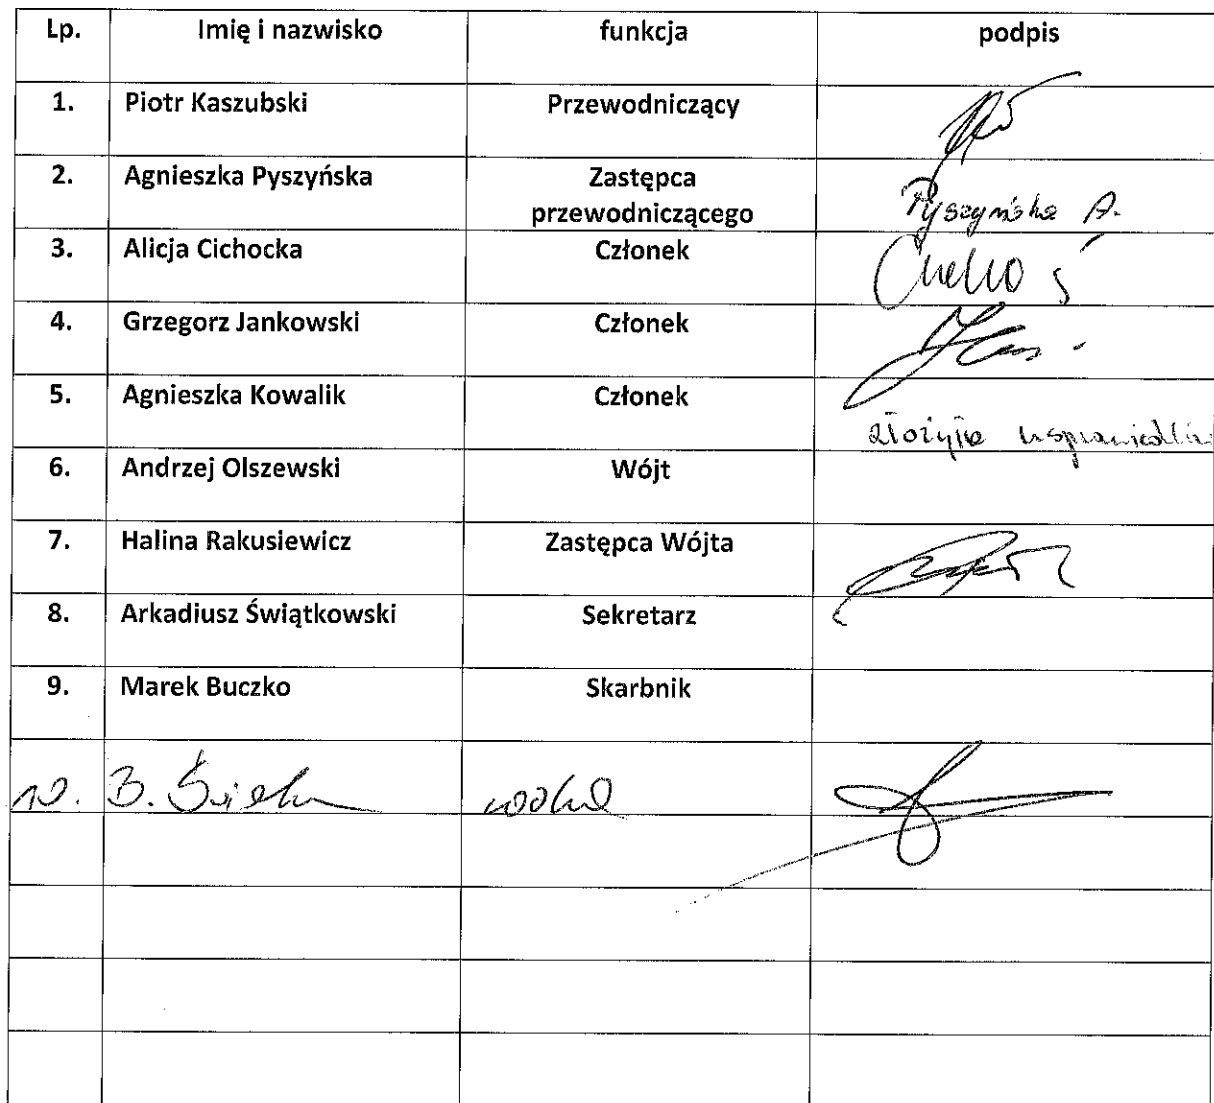 Lp. Imię i nazwisko funkcja podpis
1. Piotr Kaszubski Przewodniczący
2. Agnieszka Pyszyńska Zastępca
przewodniczącego Pyszyńska A.
3. Alicja Cichocka Członek
4. Grzegorz Jankowski Członek
5. Agnieszka Kowalik Członek
złożyła usprawiedliw
6. Andrzej Olszewski Wójt
7. Halina Rakusiewicz Zastępca Wójta
8. Arkadiusz Świątkowski Sekretarz
9. Marek Buczko Skarbnik
10. B.